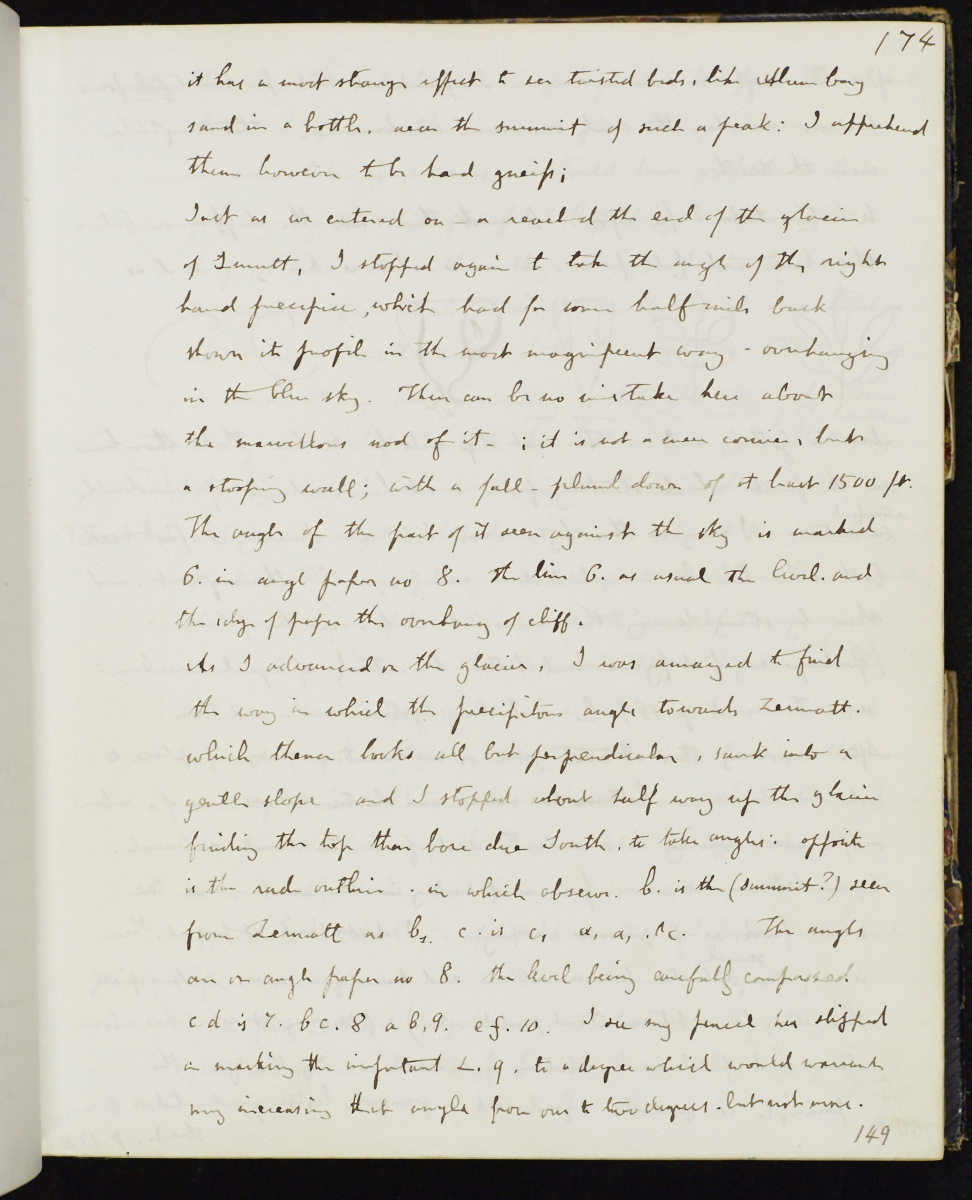 174
it has a most strange effect to see twisted beds, like Alum bay
sand in a bottle, near the summit of such a peak: I apprehend
them however to be hard gneiss;
Just as we entered on - or reached the end of the glacier
of Zmutt, I stopped again to take the angle of the right
hand precipice, which had for some half mile back
shown its profile in the most magnificent way - overhanging
in the blue sky. There can be no mistake here about
the marvellous nod of it - ; it is not a mere cornice, but
a stooping wall; with a fall - plumb down of at least 1500 ft.
The angle of the part of it seen against the sky is marked
6. in angle paper no 8. the line 6. as usual the level. and
the edge of paper the overhang of cliff.
As I advanced on the glacier, I was amazed to find
the way in which the precipitous angle towards Zermatt.
which thence looks all but perpendicular, sank into a
gentle slope and I stopped about half way up the glacier
finding the top then bore due South, to take angles: opposite
is the rude outline. in which observe. b. is the (summit?) seen
from Zermatt as b, c. is c, a, a, &c. The angles
are on angle paper no 8. the level being carefully compassed.
c d is 7. b c. 8 a b, 9. e f. 10. I see my pencil has slipped
in marking the important L. 9. to a degree which would warrant
my increasing that angle from one to two degrees. but not more.
149